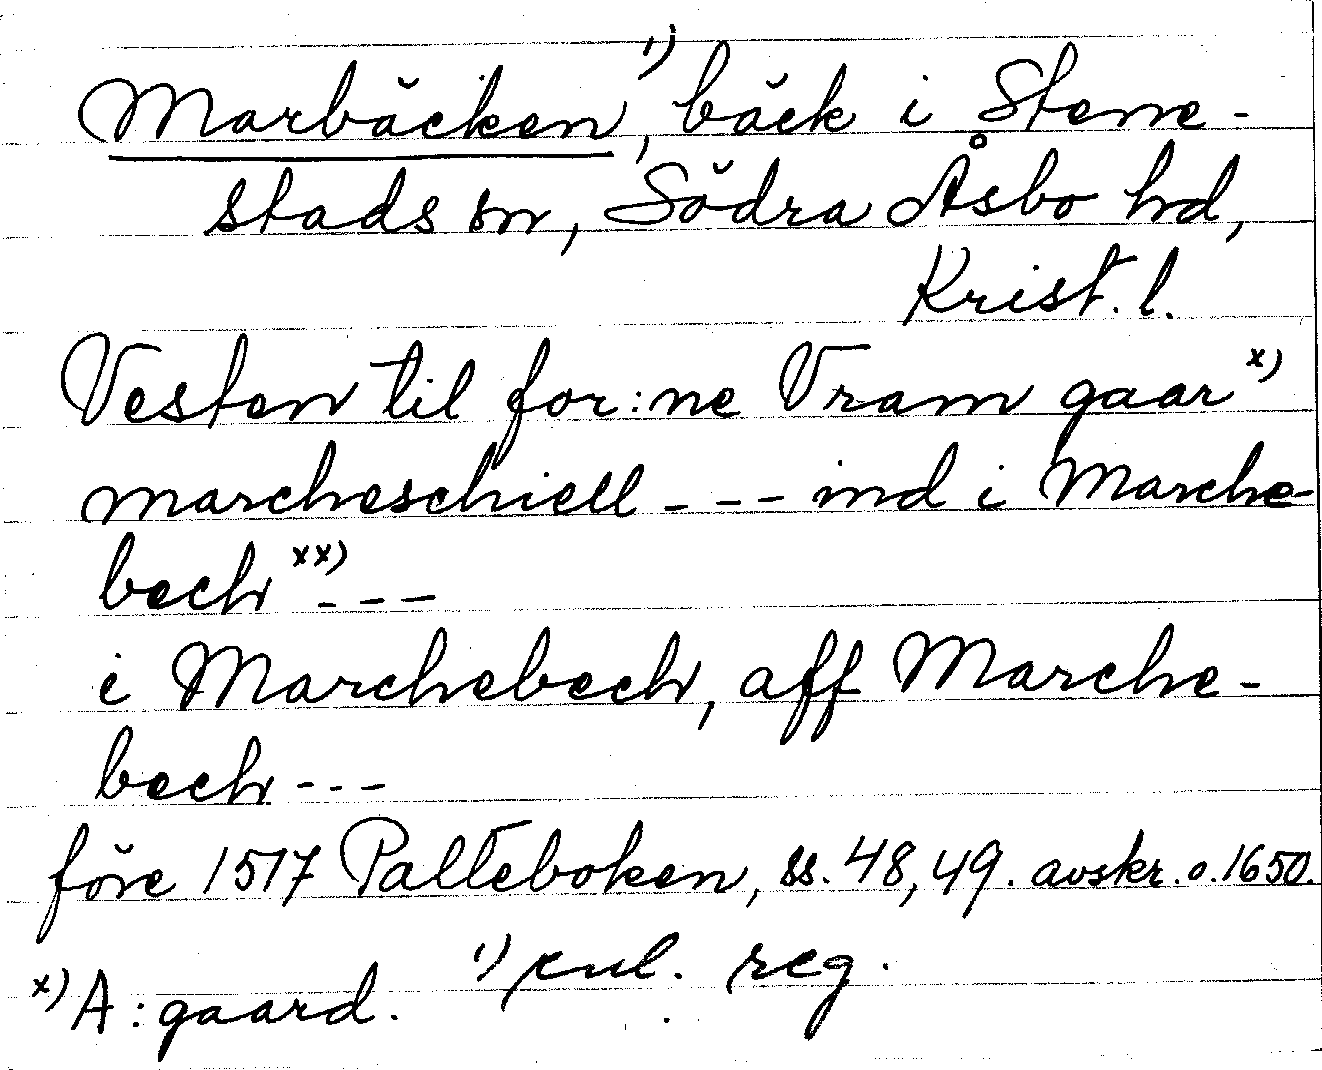 Marbäcken¹⁾, bäck i Stene-
stads sn, Södra Åsbo hd,
Krist. l.
Vesten til for:ne Vram gaar ˣ⁾
marcheschiell - - - ind i Marche-
bech ˣˣ⁾ - - -
i Marchebech, aff Marche-
bech - - -
före 1517 Palteboken, ss. 48, 49. avskr. o. 1650.
¹⁾ enl. reg.
ˣ⁾ A: gaard.